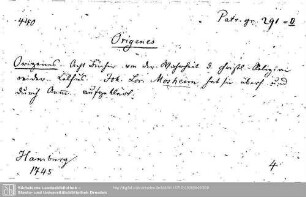 440
Patr. gr. 291 - II
Origenes
Origenes Acht Bücher von der Wahrheit d. christl. Religion
wider Celsus. Joh. Lor. Mosheim hat sie übers. und
durch Anm. aufgeklärt.
Hamburg
1745
4
Sächsische Landesbibliothek -
Staats- und Universitätsbibliothek Dresden